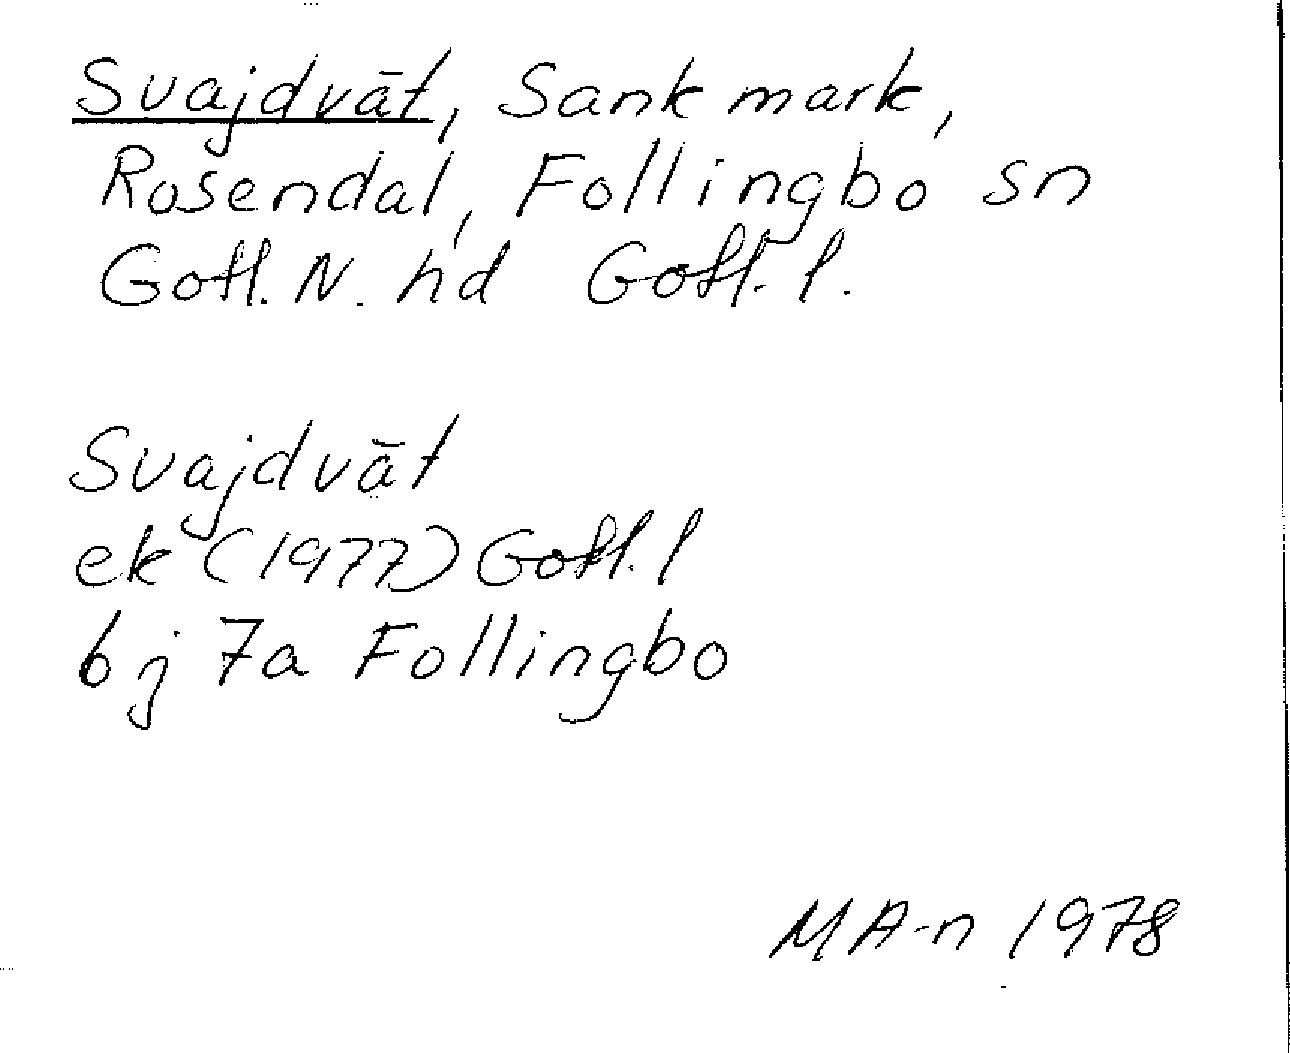 Svajdvāt, Sank mark,
Rosendal, Follingbo sn
Gotl. N. hd Gotl. l.
Svajdvāt
ek (1977) Gotl. l
bj 7a Follingbo
MA-n 1978